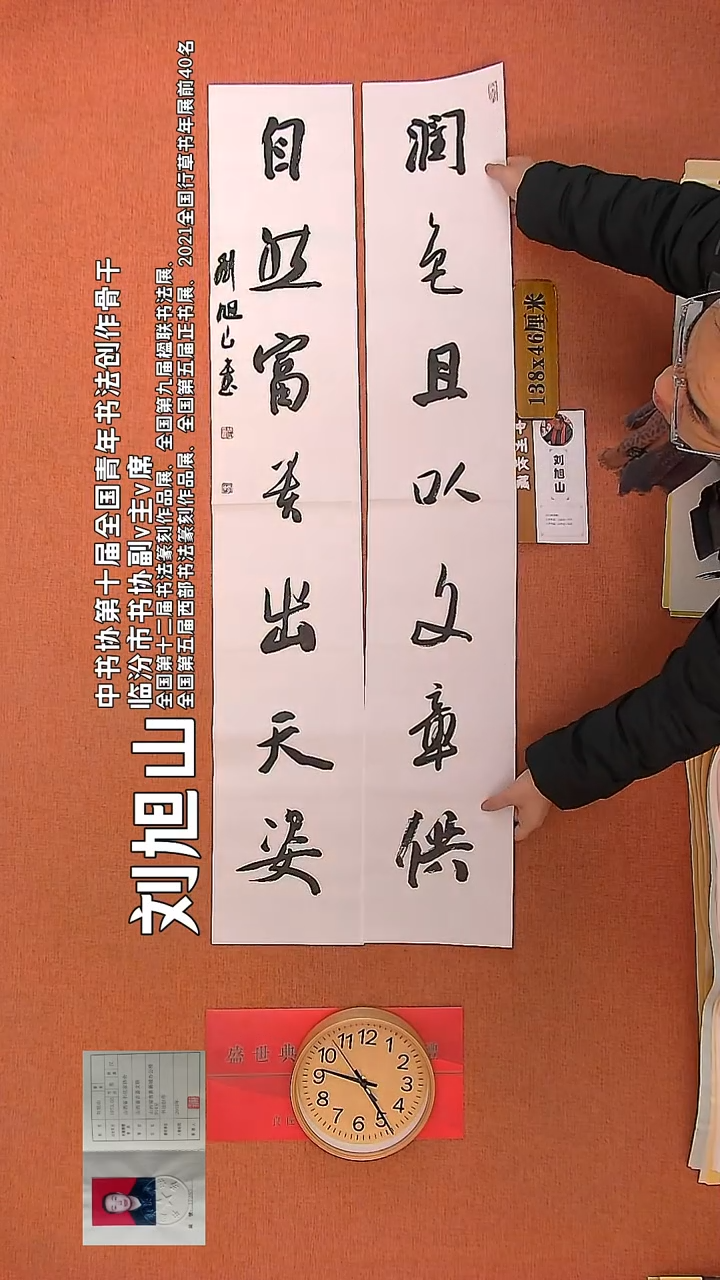 中书协第十届全国青年书法创作骨干
临汾市书协副v主v席
全国第十二届书法篆刻作品展、全国第九届楹联书法展、
全国第五届西部书法篆刻作品展、全国第五届正书展、2021全国行草书年展前40名
刘旭山
润色且以文章供
自然富贵出天姿
刘旭山书
138x46厘米
刘旭山
盛世典
12
1
2
3
4
5
6
7
8
9
10
11